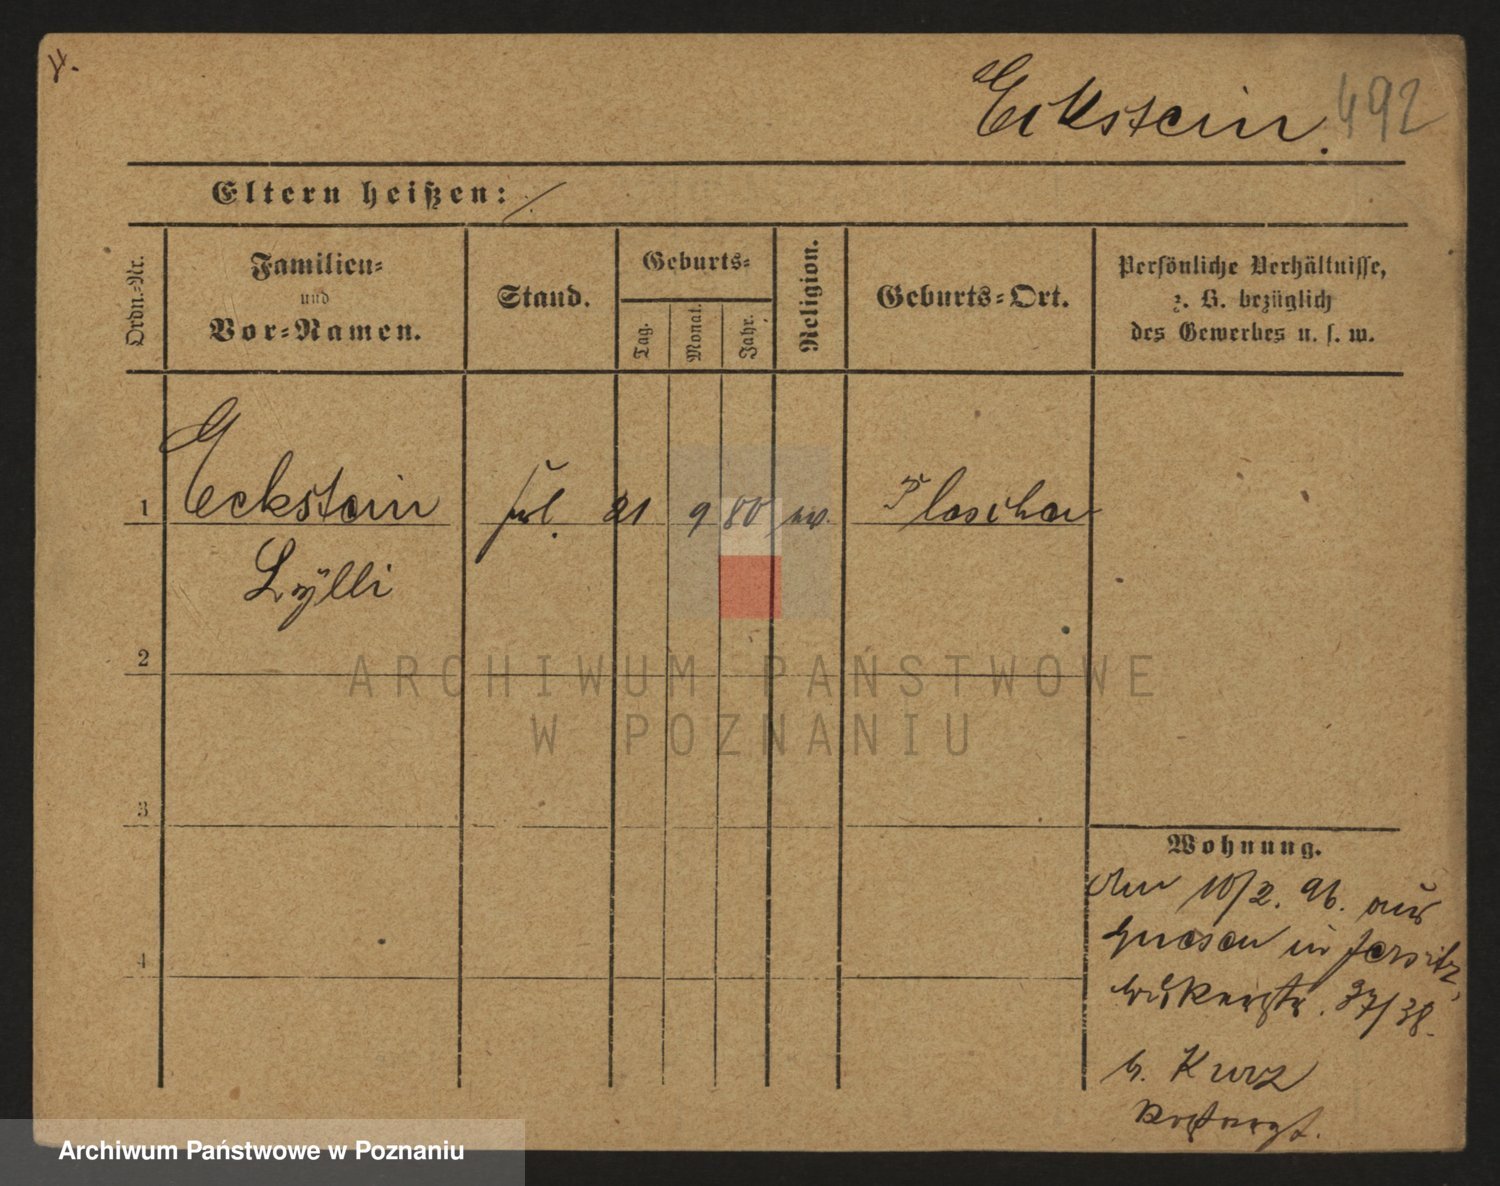 Eckstein. 492
Eltern heißen: /
Ordn.-Nr.
Familien-
und
Vor-Namen.
Stand.
Geburts-
Tag.
Monat.
Jahr.
Religion.
Geburts-Ort.
Persönliche Verhältnisse,
z. B. bezüglich
des Gewerbes u. s. w.
1 Eckstein 21 9 80 ev.
Lÿlli
2
3
4
Wohnung.
den 10/2. 96. aus
Gnesen in Jersitz,
37/38.
b. Kurz
ARCHIWUM PAŃSTWOWE
W POZNANIU
Archiwum Państwowe w Poznaniu